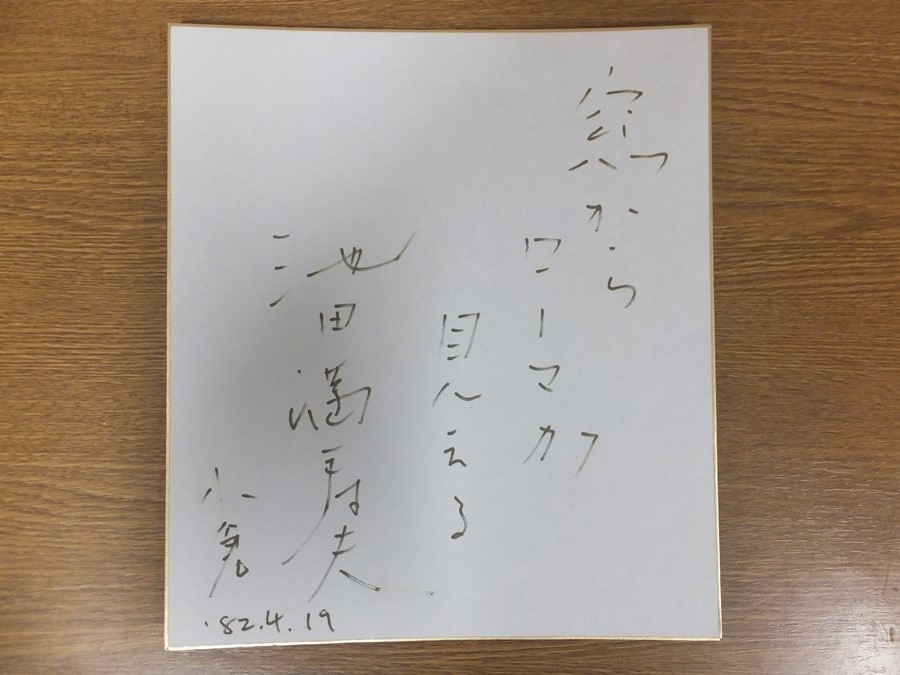 窓から
ローマが
見える
池田満寿夫
小倉
'82.4.19